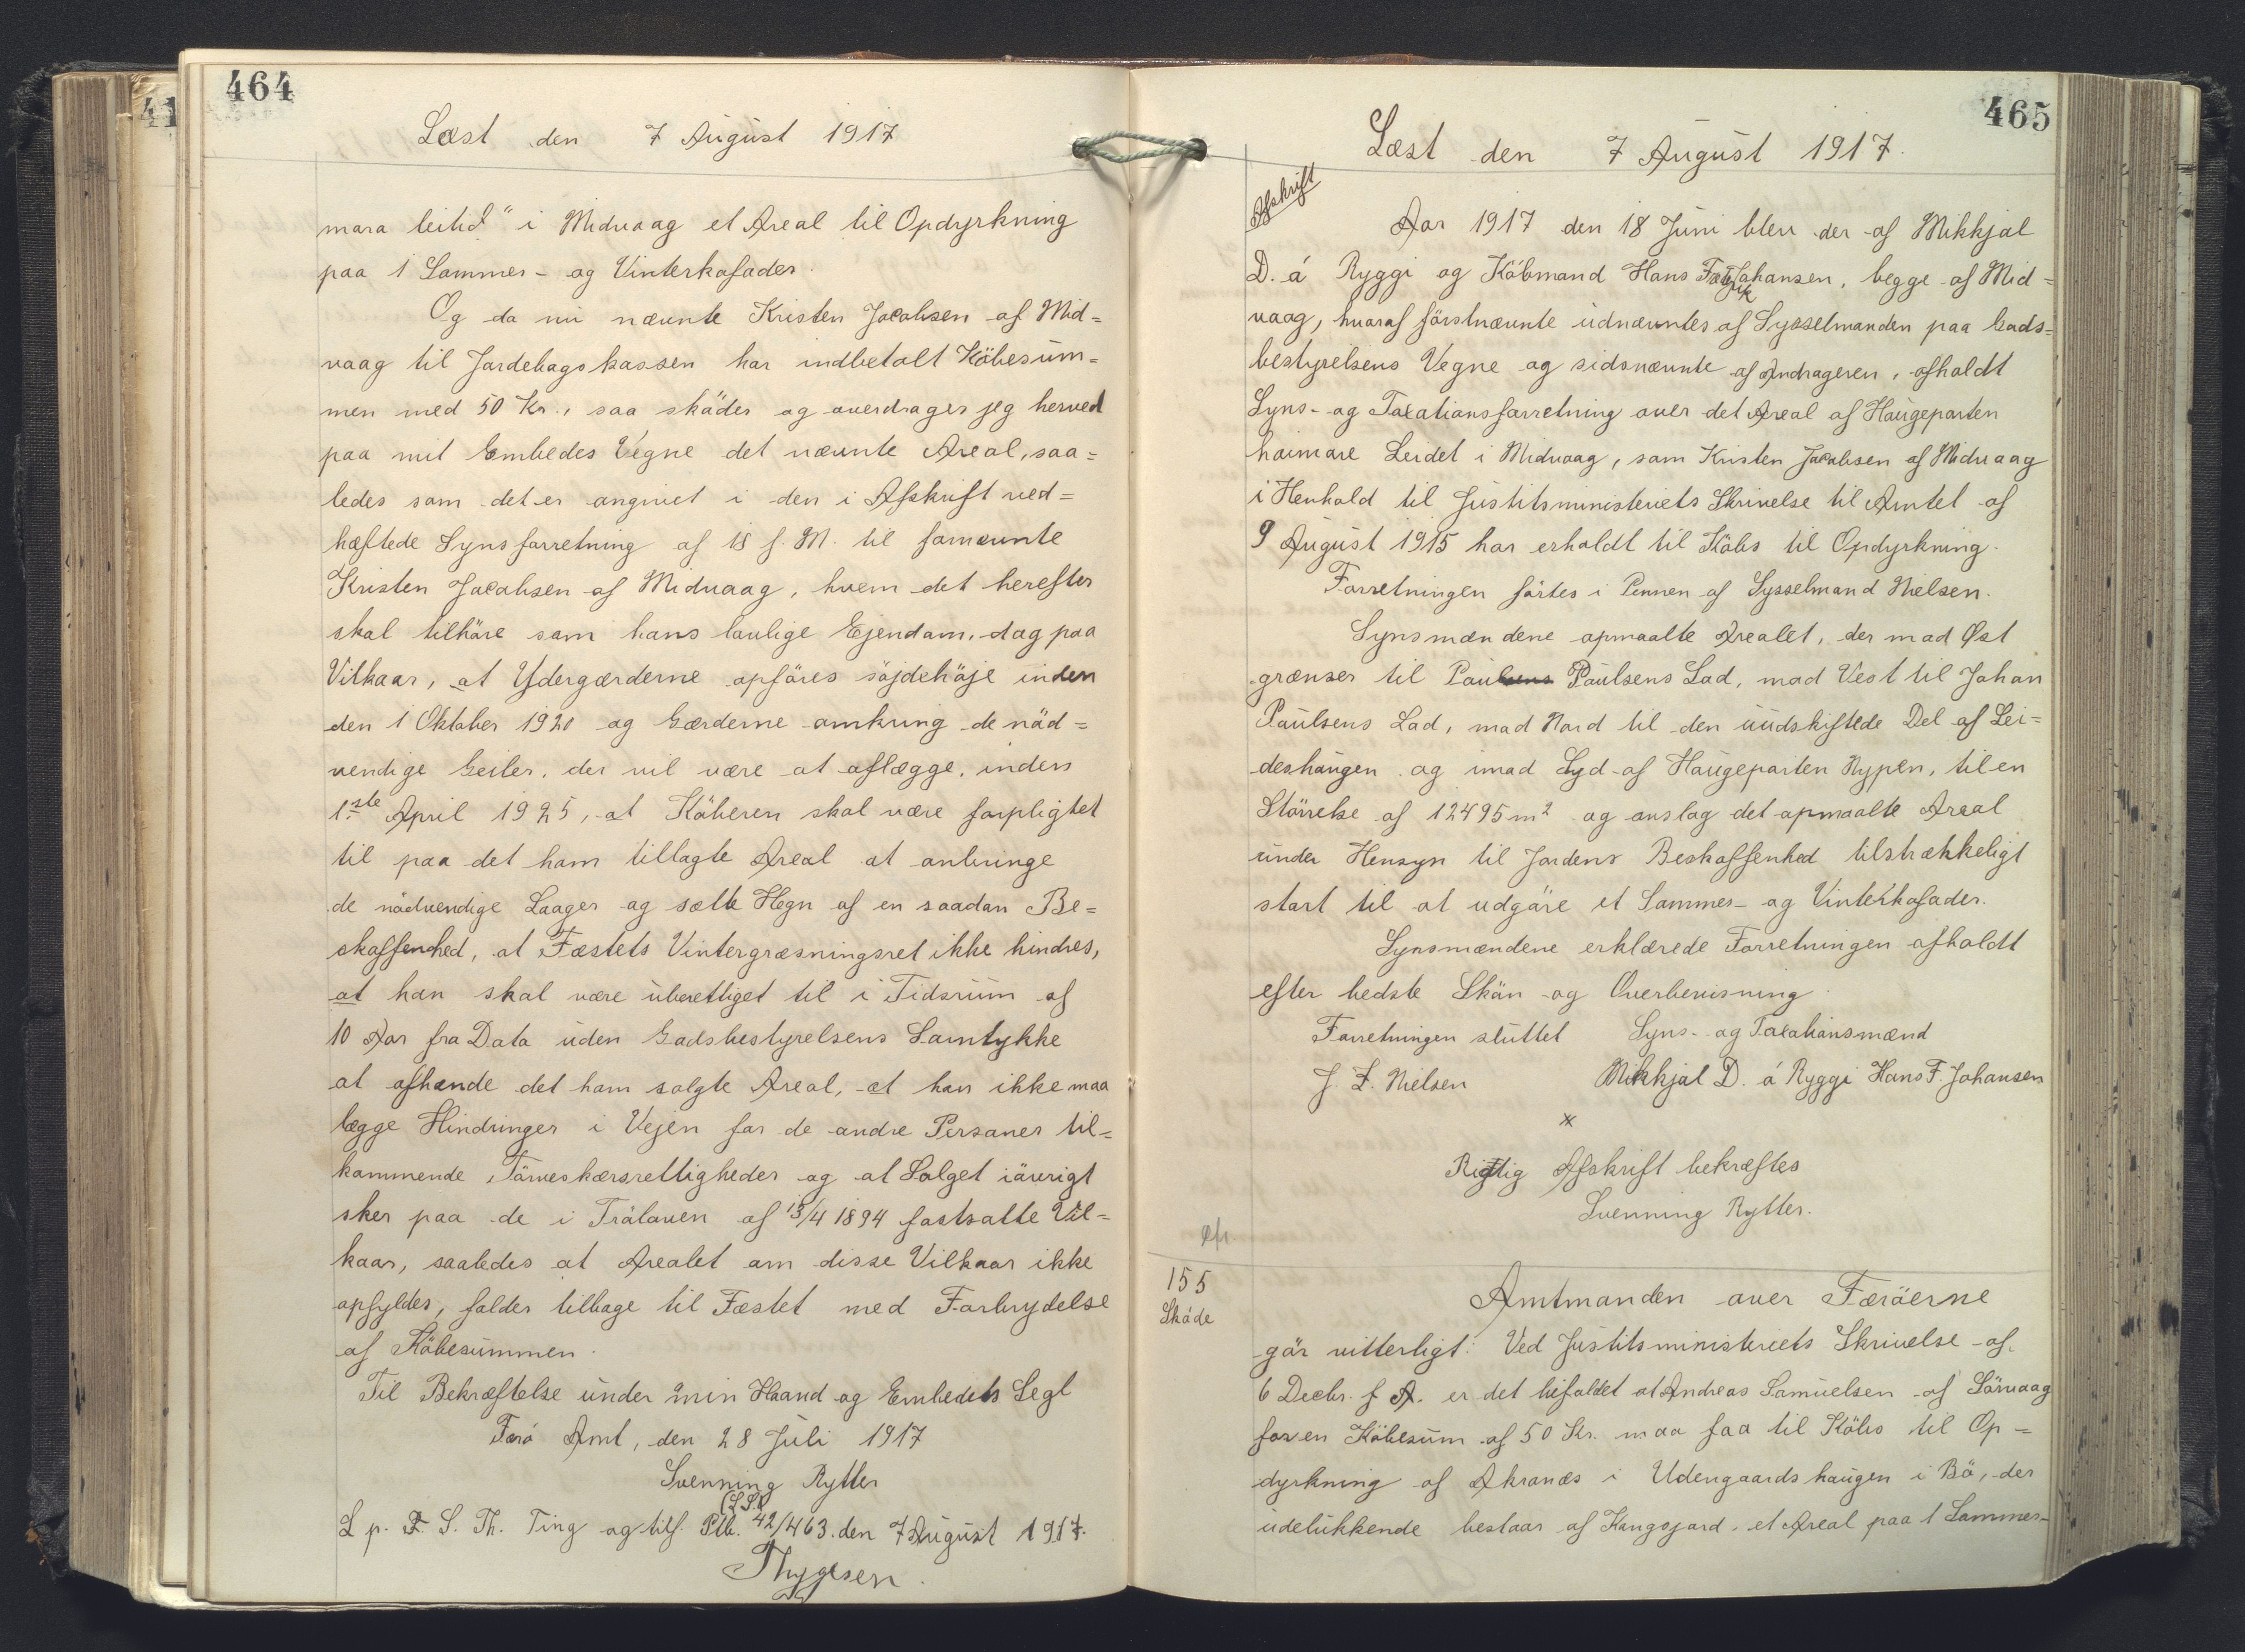 464
Læst den 7 August 1917
mara leitid" i Midvaag et Areal til Opdyrkning
paa 1 Sommer- og Vinterkofoder.
Og da nu nævnte Kristen Jacobsen af Mid=
vaag til Jordebogskassen har indbetalt Købesum=
men med 50 Kr., saa skøder og overdrager jeg herved
paa mit Embedes Vegne det nævnte Areal, saa=
ledes som det er angivet i den i Afskrift ved=
hæftede Synsforretning af 18 f. M. til fornævnte
Kristen Jacobsen af Midvaag, hvem det herefter
skal tilhøre som hans lovlige Ejendom, dog paa
Vilkaar, at Ydergærderne opføres søjdehøje inden
den 1 Oktober 1920 og Gærderne omkring de nød=
vendige Geiler, der vil være at aflægge, inden
1ste April 1925, at Køberen skal være forpligtet
til paa det ham tillagte Areal at anbringe
de nødvendige Laager og sætte Hegn af en saadan Be=
skaffenhed, at Fæstets Vintergræsningsret ikke hindres,
at han skal være uberettiget til i Tidsrum af
10 Aar fra Dato uden Godsbestyrelsens Samtykke
at afhænde det ham solgte Areal, at han ikke maa
lægge Hindringer i Vejen for de andre Personer til=
kommende Tørveskærsrettigheder og at Salget iøvrigt
sker paa de i Trøloven af 13/4 1894 fastsatte Vil=
kaar, saaledes at Arealet om disse Vilkaar ikke
opfyldes, falder tilbage til Fæstet med Forbrydelse
af Købesummen.
Til Bekræftelse under min Haand og Embedets Segl
Færø Amt, den 28 Juli 1917
Svenning Rytter
(L.S.)
L p. F. S. Th. Ting og tilf. Ptb. 42/463. den 7 August 1917.
Thygesen.
465
Læst den 7 August 1917.
Afskrift
Aar 1917 den 18 Juni blev der af Mikkjal
D. á Ryggi og Købmand Hans Fredrik Johansen, begge af Mid=
vaag, hvoraf førstnævnte udnævntes af Sysselmanden paa Gods=
bestyrelsens Vegne og sidsnævnte af Andrageren, afholdt
Syns- og Taxationsforretning over det Areal af Haugeparten
hoimare Leidet i Midvaag, som Kristen Jacobsen af Midvaag
i Henhold til Justitsministeriets Skrivelse til Amtet af
9 August 1915 har erholdt til Købs til Opdyrkning.
Forretningen førtes i Pennen af Sysselmand Nielsen.
Synsmændene opmaalte Arealet, der mod Øst
grænser til Paulsens Paulsens Lod, mod Vest til Johan
Paulsens Lod, mod Nord til den uudskiftede Del af Lei=
deshaugen og imod Syd af Haugeparten Nypen, til en
Størrelse af 12495 m² og anslog det opmaalte Areal
under Hensyn til Jordens Beskaffenhed tilstrækkeligt
stort til at udgøre et Sommer- og Vinterkofoder.
Synsmændene erklærede Forretningen afholdt
efter bedste Skøn og Overbevisning.
Forretningen sluttet Syns- og Taxationsmænd
J. F. Nielsen Mikkjal D. á Ryggi Hans F. Johansen
x
Rigtig Afskrift bekræftes
Svenning Rytter.
155
Skøde
Amtmanden over Færøerne
gør vitterligt: Ved Justitsministeriets Skrivelse af
6 Decbr. f A. er det bifaldet at Andreas Samuelsen af Sørvaag
for en Købesum af 50 Kr. maa faa til Købs til Op=
dyrkning af Akranæs i Udengaardshaugen i Bø, der
udelukkende bestaar af Kongsjord, et Areal paa 1 Sommer-